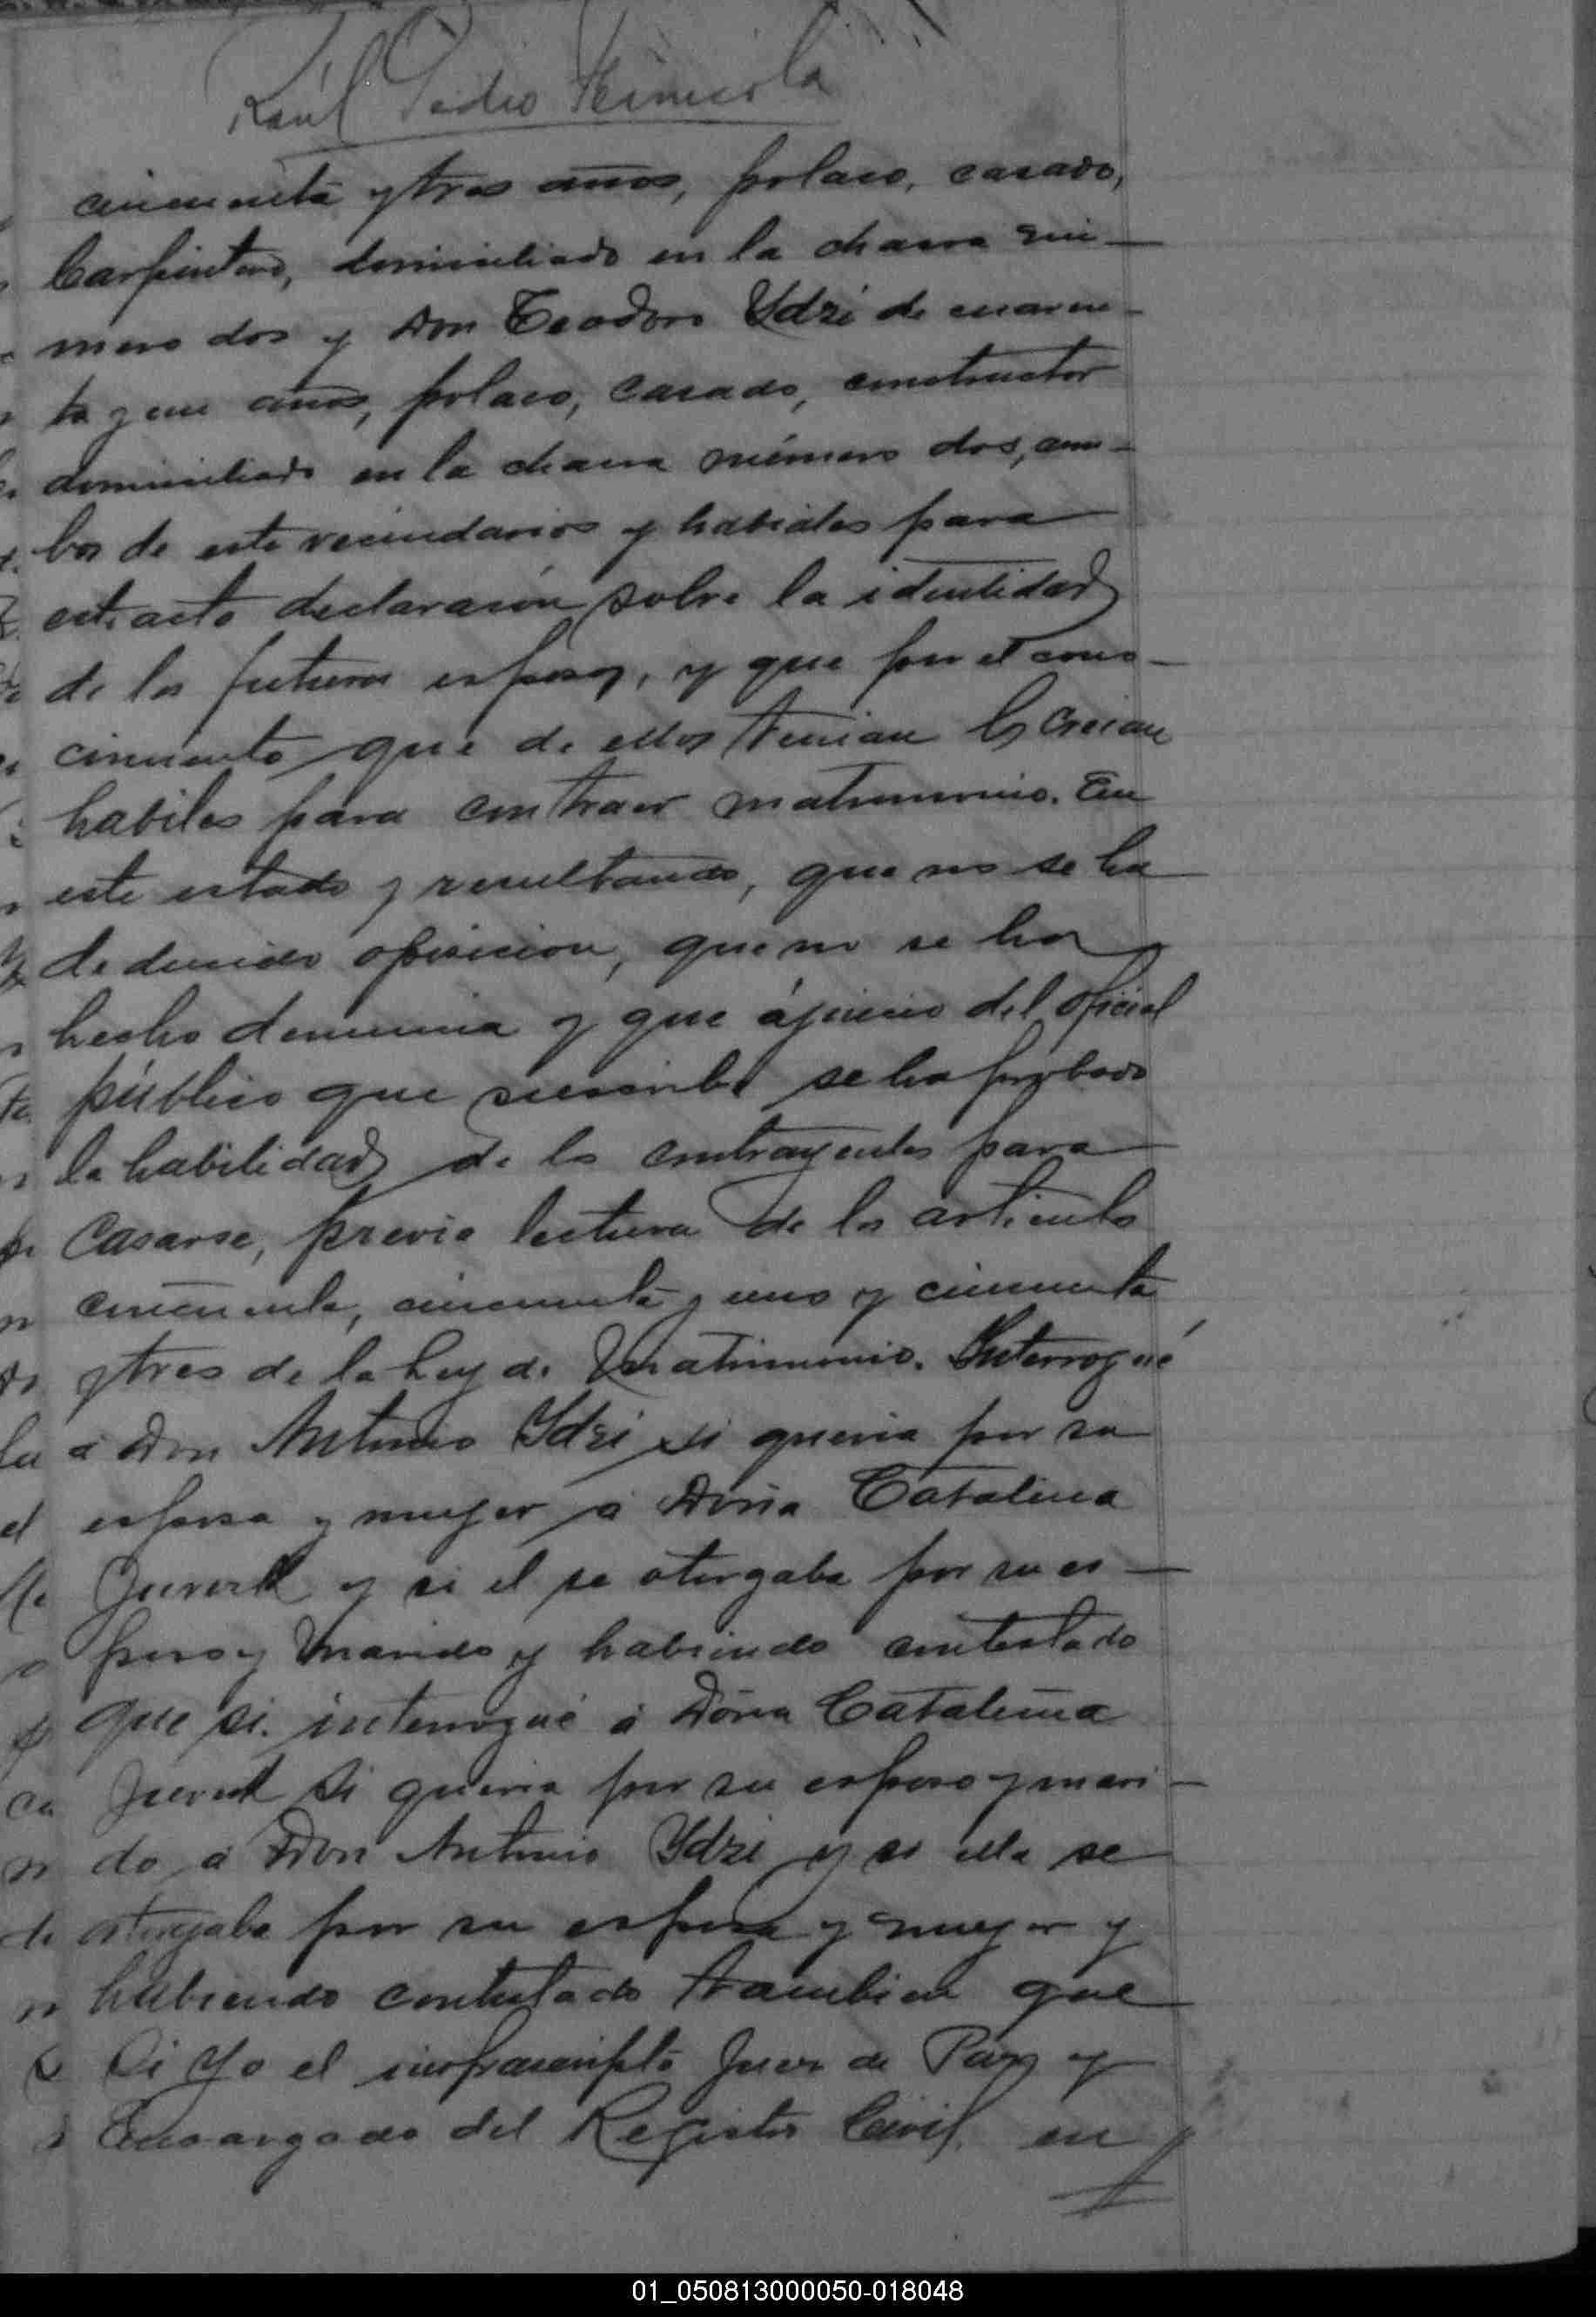 Raúl Pedro
cincuenta y tres años, polaco, casado,
Carpintero, domiciliado en la chacra nú-
mero dos y Don Teodoro Ydzi de cuaren-
ta y un años, polaco, casado, constructor
domiciliado en la chacra número dos, am-
bos de este vecindarios y habiales para
este acto declaración sobre la identidad
de los futuros esposos, y que por el cono-
cimiento que de ellos tenian los creian
habiles para contraer matrimonio. En
este estado y resultando, que no se ha
deducido oposicion, que no se ha
hecho denuncia y que á juicio del oficial
público que suscribe se ha probado
la habilidad de los contrayentes para
casarse, previa lectura de los articulos
cincuenta, cincuenta y uno y cincuenta
y tres de la Ley de Matrimonio. Interrogué
á Don Antonio Ydzi si queria por su
esposa y mujer á Doña Catalina
y si el se otorgaba por su es-
poso y marido y habiendo contestado
que si. interrogué á Doña Catalina
si queria por su esposo y mari-
do á Don Antonio Ydzi y si ella se
otorgaba por su esposa y mujer y
habiendo contestado tambien que
si Yo el infrascripto Juez de Paz y
Encargado del Registro Civil, en
01_050813000050-018048